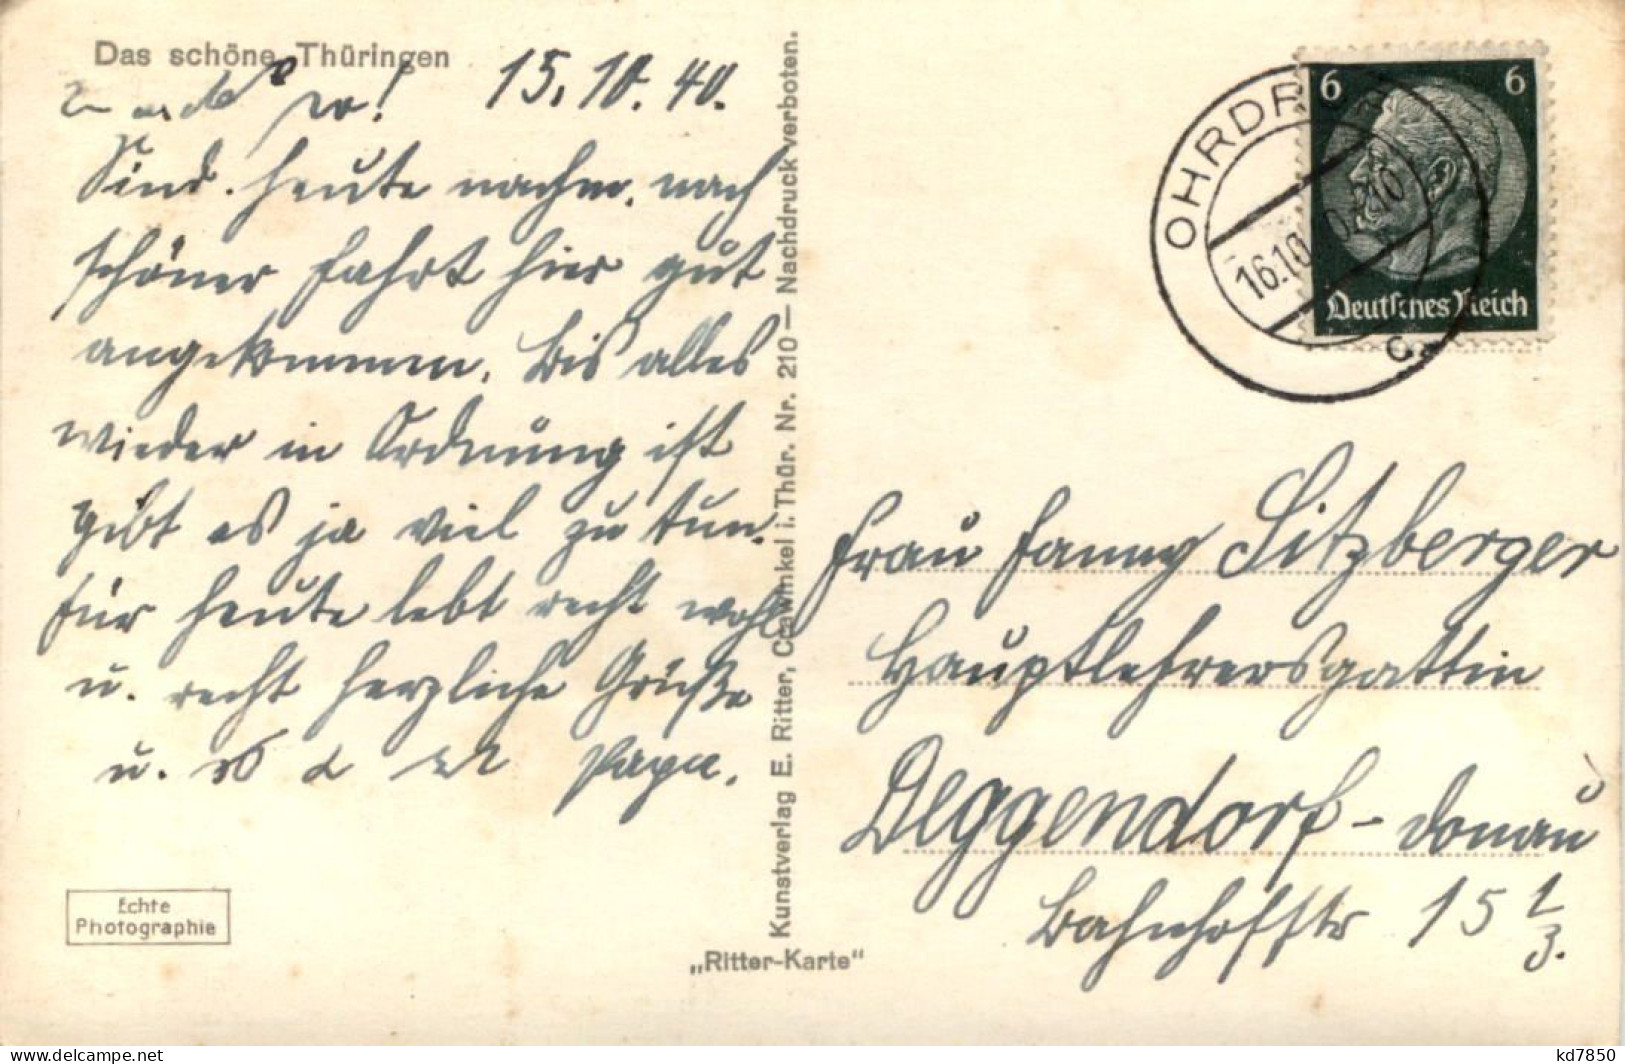 Das schöne Thüringen
15.10.40.
Sind heute nachm. nach
schöner Fahrt hier gut
angekommen. Bis alles
wieder in Ordnung ist
gibt es ja viel zu tun.
Für heute lebt recht wohl
u. recht herzliche Grüße
u. Papa.
Echte
Photographie
Kunstverlag E. Ritter, Crawinkel i. Thür. Nr. 210 — Nachdruck verboten.
„Ritter-Karte"
6 6
Deutsches Reich
OHRDRUF
16.10
Frau Fanny Sitzberger
Hauptlehrersgattin
Deggendorf - Donau
Bahnhofstr 15 1/3.
kd7850